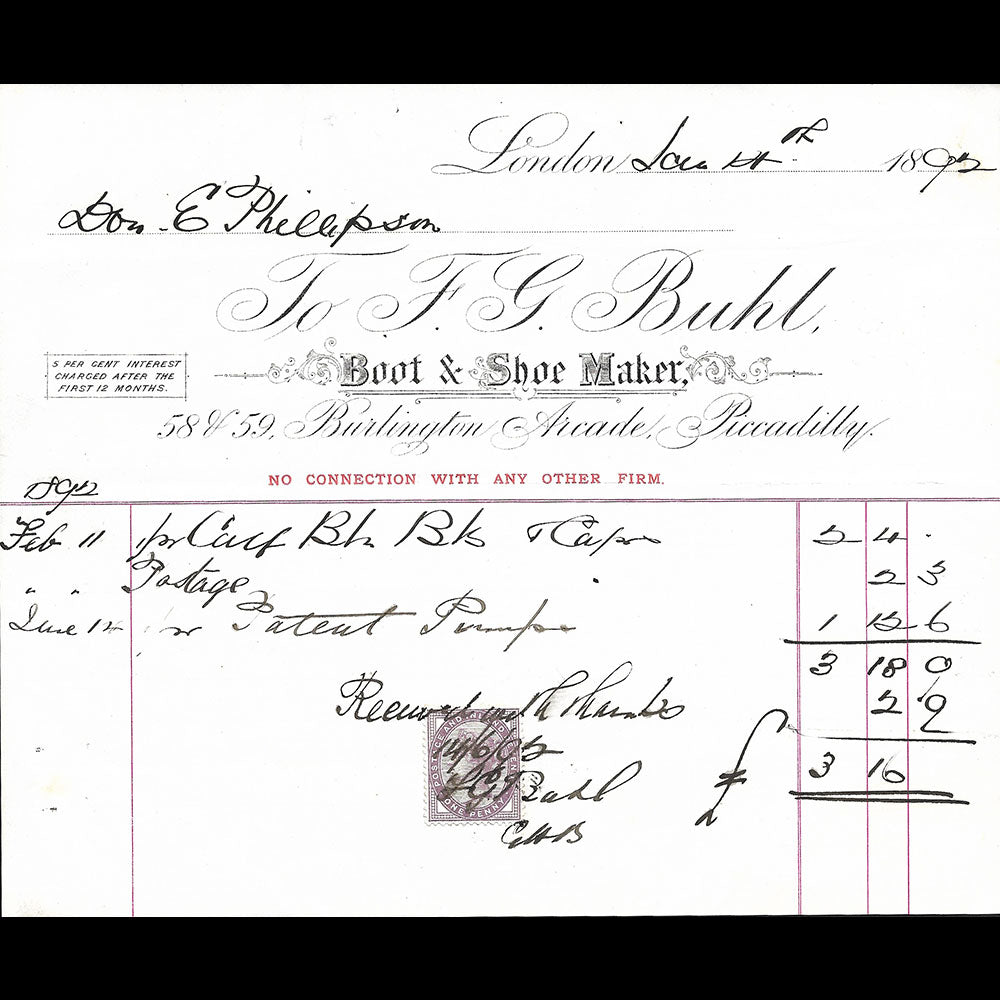 London Jan 14th 1892
Don E Phillipson
To F. G. Buhl,
5 PER CENT INTEREST
CHARGED AFTER THE
FIRST 12 MONTHS.
Boot & Shoe Maker,
58 & 59, Burlington Arcade, Piccadilly.
NO CONNECTION WITH ANY OTHER FIRM.
1892
Feb 11 1 pr Calf Btn Bts 2 4 .
" " Postage 2 3
June 14 1 pr Patent Pumps 1 12 6
3 18 9
Received with thanks 2 9
POSTAGE AND INLAND REVENUE
F G Buhl £ 3 16
ONE PENNY